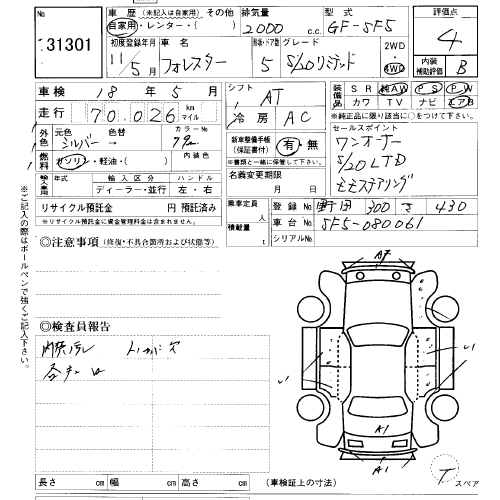 No. 31301
車歴 (未記入は自家用) その他
自家用・レンター・( )
排気量 2000 c.c.
型式 GF-SF5
評価点 4
初度登録年月 11/5月
車名 フォレスター
形状・ドア数 5
グレード S/20リミテッド
2WD・4WD
内装補助評価 B
車検 18年5月
シフト AT
装備品 SR AW PS PW
カワ TV ナビ エアB
※純正品に限り該当に○をつけて下さい。
走行 70,026 km マイル
冷房 AC
外色 元色 シルバー→ 色替
カラーNo.
内装色
燃料 ガソリン・軽油・( )
新車整備手帳(保証書付) 有・無
※書類と一緒に保管して下さい。
セールスポイント
ワンオーナー
S/20LTD
モモステアリング
輸入車 年式 輸入区分 ハンドル
ディーラー・並行 左・右
名義変更期限 月 日
リサイクル預託金 円 預託済み
※リサイクル預託金に資金管理料金は含まれません。
乗車定員 人
積載量 t
登録No. 野田 300 さ 430
車台No. SF5-080061
シリアルNo.
◎注意事項 (修復・不具合箇所および状態等)
※ご記入の際はボールペンで強くご記入下さい。
◎検査員報告
A7
A1
A1
長さ cm 幅 cm 高さ cm (車検証上の寸法)
T スペア